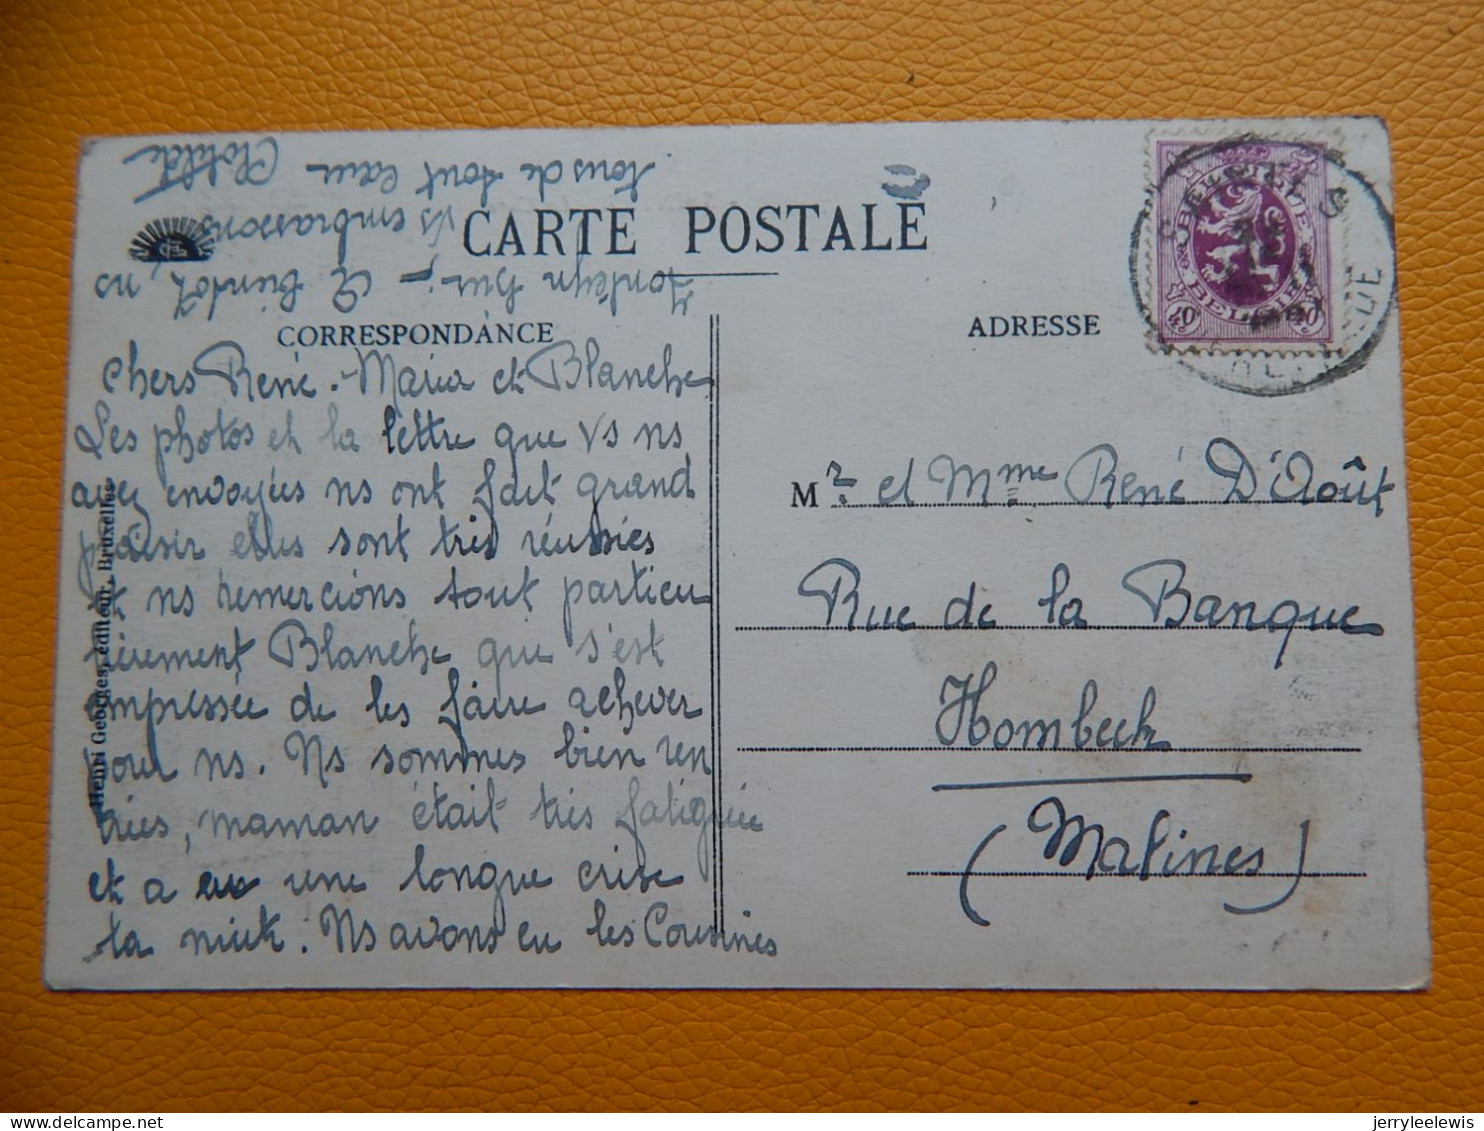 CARTE POSTALE
CORRESPONDANCE
ADRESSE
chers René. Maria et Blanche
Les photos et la lettre que vs ns
avez envoyées ns ont fait grand
plaisir elles sont très réussies
et ns remercions tout particu
lièrement Blanche que s'est
empressée de les faire achever
pour ns. Ns sommes bien ren
trées, maman était très fatiguée
et a eu une longue crise
la nuit. Ns avons eu les Cousines
hier. A bientôt, ns
vs embrassons
tous de tout cœur
Clotilde
Mr et Mme René D'Août
Rue de la Banque
Hombeek
(Malines)
Henri Georges, éditeur, Bruxelles
BELGIQUE
BELGIE
40c 40c
jerryleelewis